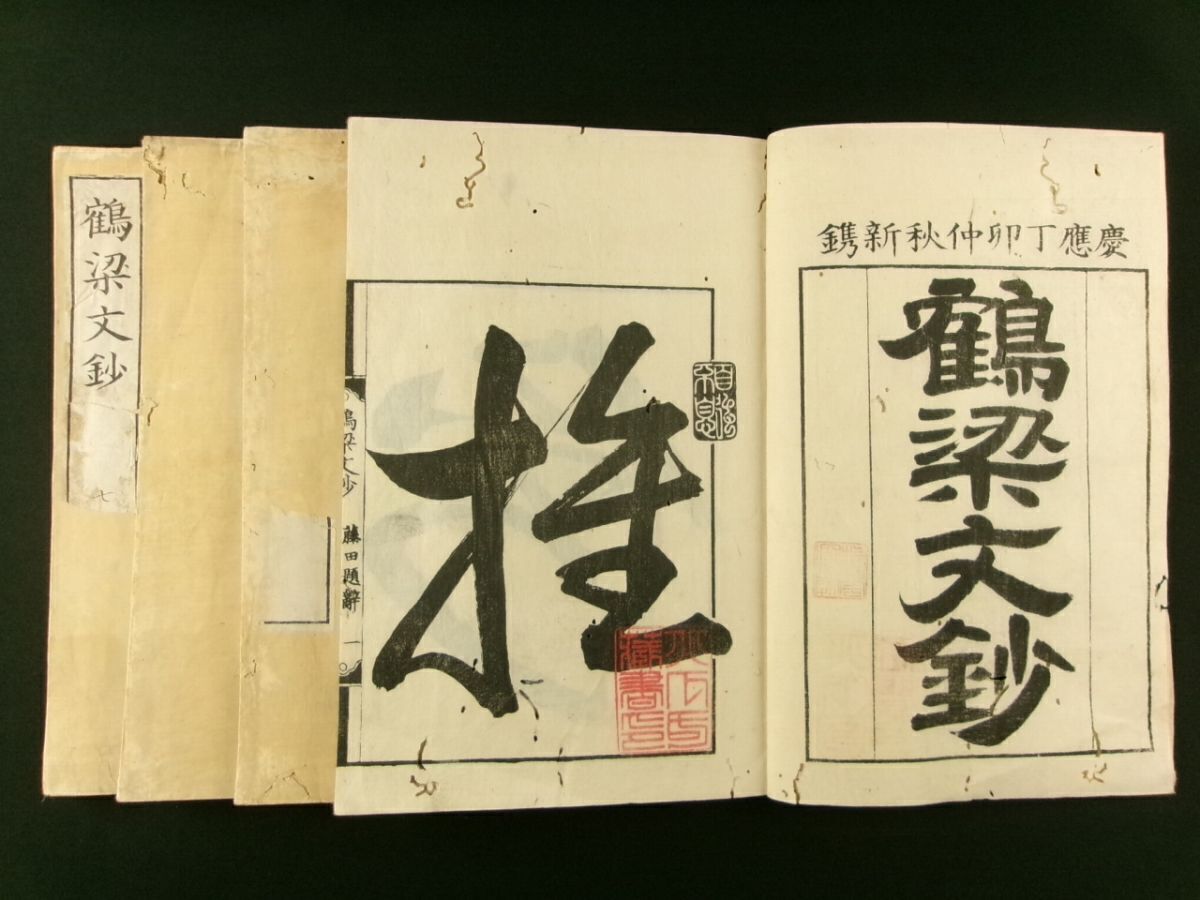 慶應丁卯仲秋新鐫
鶴梁文鈔
推
藏書印
鶴梁文鈔 藤田題辭 一
鶴梁文鈔
七